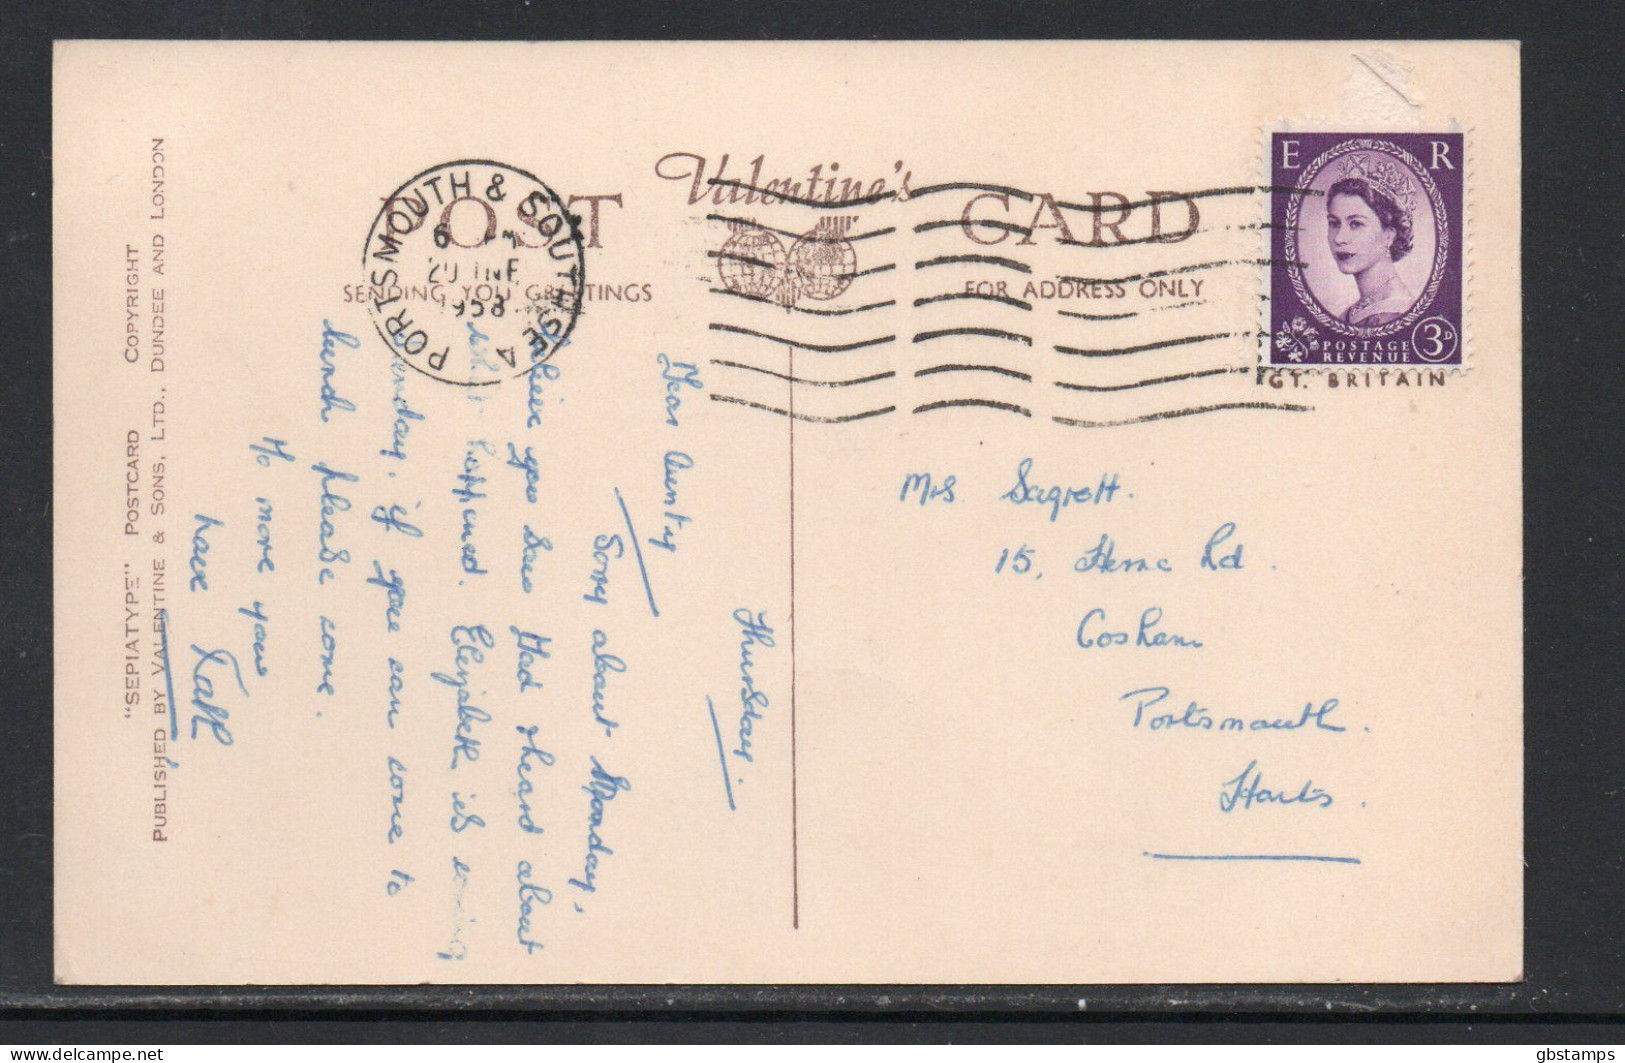 "SEPIATYPE" POSTCARD COPYRIGHT
PUBLISHED BY VALENTINE & SONS, LTD., DUNDEE AND LONDON
POST Valentine's CARD
SENDING YOU GREETINGS
FOR ADDRESS ONLY
PORTSMOUTH & SOUTHSEA
6
20 JNE
1958
E R
POSTAGE
REVENUE
3D
GT. BRITAIN
Thursday.
Dear Aunty
Sorry about Monday,
you saw Had heard about
what happened. Elizabeth is coming
if you can come to
lunch please come.
No more now
love
Mrs
15, Rd.
Cosham
Portsmouth.
Hants.
gbstamps